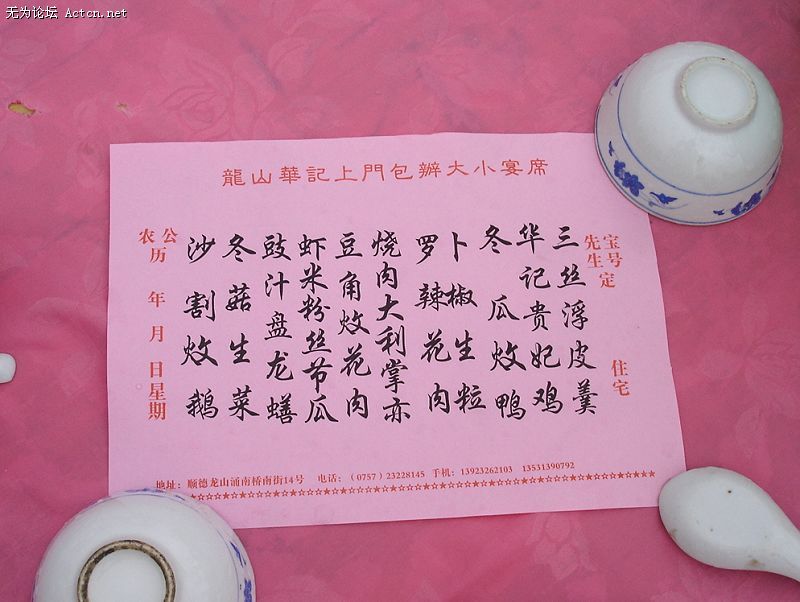 无为论坛 Actcn.net
龍山華記上門包辦大小宴席
宝号
先生 定
住宅
三丝浮皮羹
华记贵妃鸡
冬瓜炆鸭
卜椒生粒
罗辣花肉
烧肉大利掌亦
豆角炆花肉
虾米粉丝节瓜
豉汁盘龙蟮
冬菇生菜
沙割炆鹅
公
农历 年 月 日星期
地址：顺德龙山涌南桥南街14号 电话：（0757）23228145 手机：13923262103 13531390792